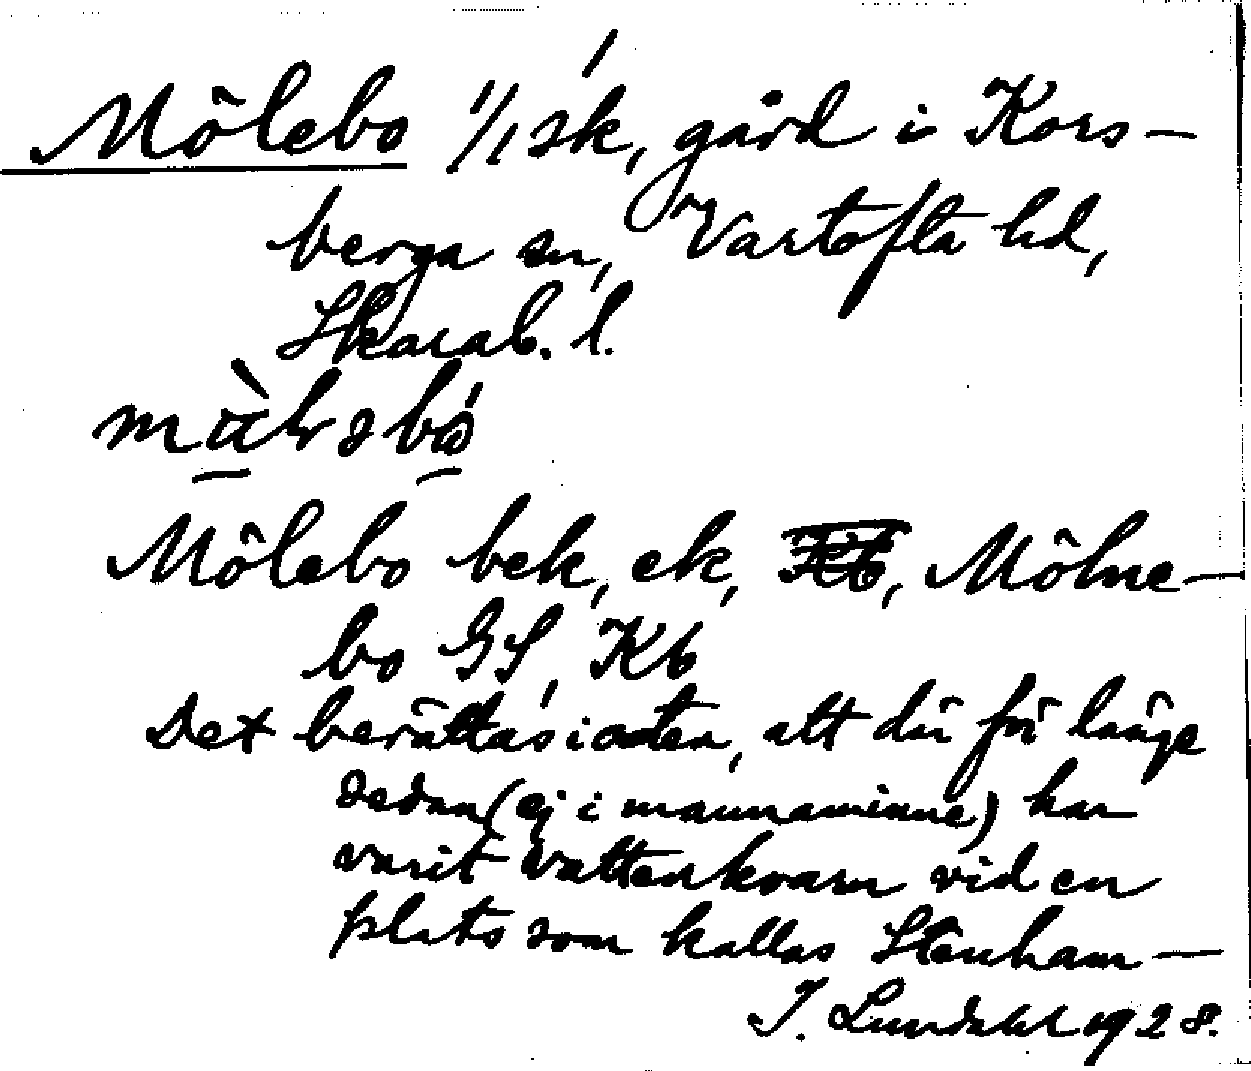 Mölebo 1/1 sk, gård i Kors-
berga sn, Vartofta hd,
Skarab. l.
Mölebo bek, ek, Mölne-
bo GS, Kb
Det berättas i orten, att där för länge
sedan (ej i mannaminne) har
varit vattenkvarn vid en
plats som kallas Stenham-
I. Lundahl 1928.